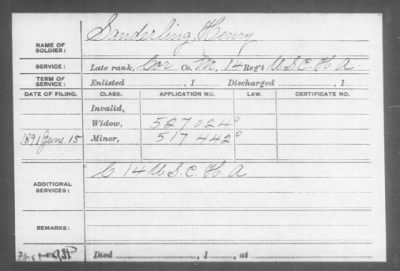 NAME OF SOLDIER: Sanderling, Henry
SERVICE: Late rank, Cor Co. M, 14 Reg't U.S.C.H.A
TERM OF SERVICE: Enlisted , 1 Discharged , 1
DATE OF FILING. CLASS. APPLICATION NO. LAW. CERTIFICATE NO.
Invalid,
Widow, 527.024
1891 June 15 Minor, 517.442
ADDITIONAL SERVICES: C 14 U.S.C.H.A
REMARKS:
Died , 1 , at